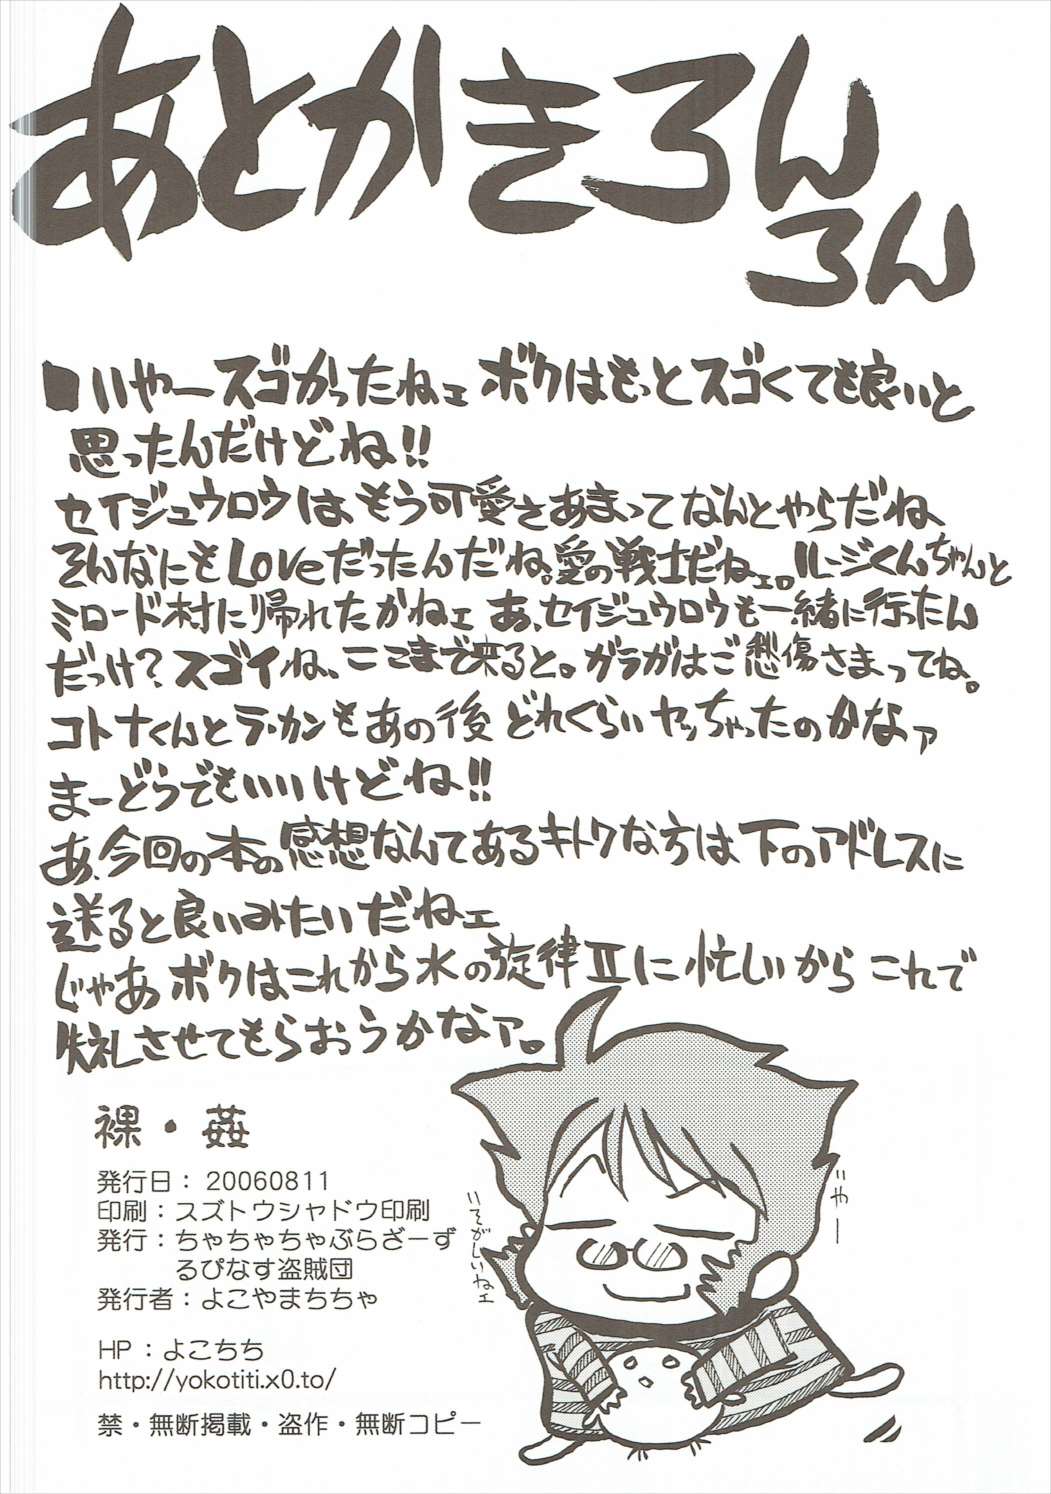 あとかきろん
ろん
■いやースゴかったねェ ボクはもっとスゴくても良いと
思ったんだけどね!!
セイジュウロウは、もう可愛さあまってなんとやらだね、
そんなにもLoveだったんだね。愛の戦士だねェ。ルージくんちゃんと
ミロード村に帰れたかねェ あ、セイジュウロウも一緒に行ったん
だっけ?スゴイね、ここまで来ると。ガラガはご愁傷さまってね。
コトナくんとラ・カンもあの後どれくらいヤッちゃったのかなァ
まーどうでもいいけどね!!
あ、今回の本の感想なんてあるキトクな方は下のアドレスに
送ると良いみたいだねェ
じゃあボクはこれから水の旋律Ⅱに忙しいからこれで
失礼させてもらおうかなァ。
裸・姦
発行日:20060811
印刷:スズトウシャドウ印刷
発行:ちゃちゃちゃぶらざーず
るぴなす盗賊団
発行者:よこやまちちゃ
HP:よこちち
http://yokotiti.x0.to/
禁・無断掲載・盗作・無断コピー
いそがしいねェ
いやー